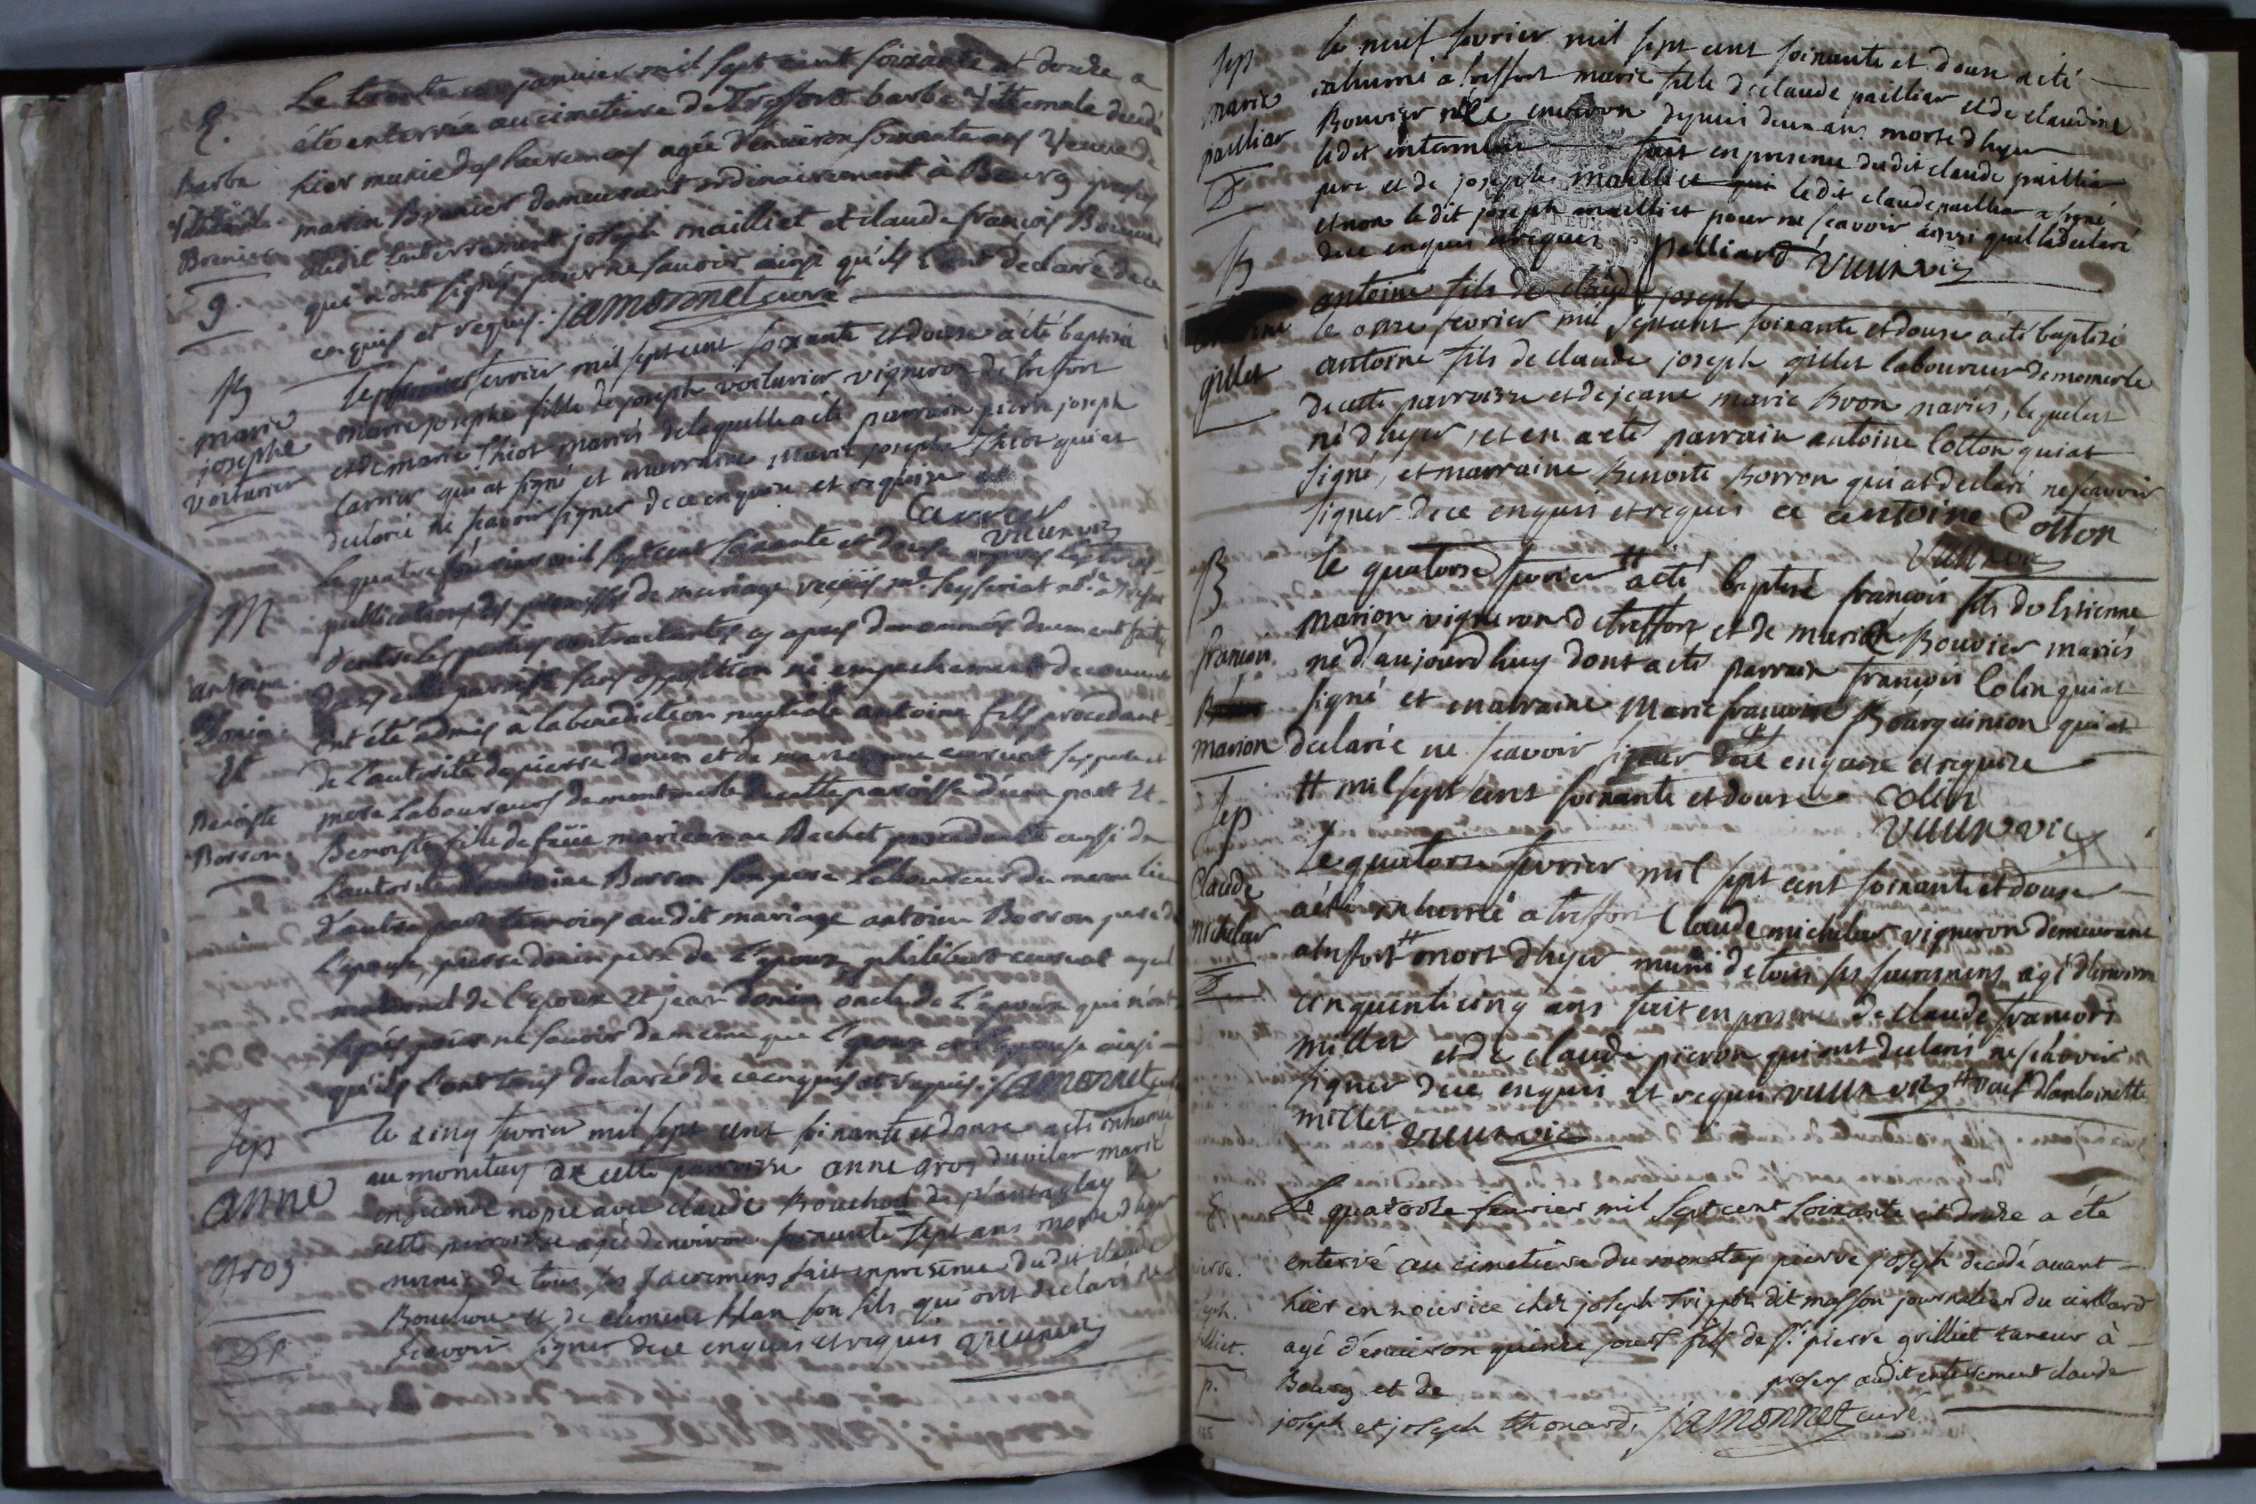 S.
Barbe
Brenier
9.
Le trente janvier mil sept cent soixante et douze a
été enterrée au cimetiere de Treffort barbe décédé
hier munie des sacremens agée d'environ soixante ans veuve de
marin Brenier demeurant ordinairement à Bourg presens
audit enterrement joseph mailliet et claude françois Bouvier
qui n'ont signés pour ne savoir ainsi qu'ils l'ont declaré de ce
enquis et requis. jamonnet curé
B
marie
josephe
voiturier
le fevrier mil sept cent soixante et douse a été baptisée
marie josephe fille de joseph voiturier vigneron de treffort
et de marie thiot mariés de laquelle a été parrain pierre joseph
Carrier qui at signé et marraine marie josephe thiot qui at
declaré ne scavoir signer de ce enquise et requise
Carrier
vuunvic
M
antoine
Donin
Et
Benoiste
Borron
Le quatre février mil sept cent soixante et douse apres les trois
publications des promesses de mariage
d'entre les parties contractantes cy apres denommées duement faites
dans cette paroisse sans opposition ni empechement
ont été admis à la benediction nuptiale antoine fils procedant
de l'autorité de pierre donin et de marie curunt ses pere et
mere laboureurs de montmerle de cette paroisse d'une part Et
Benoiste fille de feüe marie anne Bachet procedante aussi de
l'autorité d'antoine Borron son pere laboureur du meme lieu
d'autre part temoins audit mariage antoine Borron pere de
l'epouse, pierre donin pere de l'epoux, philibert ayeul
maternel de l'epoux et jean donin oncle de l'epoux qui n'ont
signés pour ne savoir de meme que l'epoux et l'epouse ainsi
qu'ils l'ont tous declarés de ce enquis et requis. jamonnet curé
Sep
anne
gros
Dt
le cinq fevrier mil sept cent soixante et douse a été inhumée
au monetay de cette parroisse anne gros du vilar marié
en seconde nopce avec claude Bouchou de plantaglay de
cette parroisse agée d'environ soixante sept ans morte d'hyer
munie de tous ses sacremens fait en presence dudit claude
Bouchou et de clement blan son fils qui ont declaré ne
scavoir signer de ce enquis et requis vuunvic
Sep
marie
pailliar
D
le neuf fevrier mil sept cent soixante et douse a été
inhumé a treffort marie fille de claude pailliar et de claudine
Bouvier née environ depuis deux ans morte d'hyer
ledit enterrement fait en presence dudit claude pailliar
pere et de joseph mailliet qui ledit claude pailliar a signé
et non ledit joseph mailliet pour ne scavoir ainsi quil la declaré
de ce enquis et requis palliard vuunvic
B
antoine
gillet
antoine fils de claude joseph
le onze fevrier mil sept cent soixante et douse a été baptisé
antoine fils de claude joseph gillet laboureur de momerle
de cette parroisse et de jeane marie Bvon mariés, lequel est
né d'hyer, et en a été parrain antoine Cotton qui at
signé, et marraine Benoite Borron qui at declaré ne scavoir
signer de ce enquis et requis ce antoine Cotton
vuunvic
B
françois
marion
le quatorse fevrier # a été baptisé françois fils de Estienne
marion vigneron de treffort et de marie Bouvier mariés
né d'aujourdhuy dont a été parrain françois Colin qui at
signé et marraine Marie françoise Bourguinion qui at
declarée ne scavoir signer de ce enquise et requise
# mil sept cent soixante et douse Colin
vuunvic
Sep
Claude
michelar
D
Le quatorse fevrier mil sept cent soixante et douse
a été inhumé a treffort Claude michelar vigneron demeurant
a treffort # mort d'hyer muni de tous ses sacremens agé d'environ
cinquente cinq ans fait en presence de claude françois
millet et de claude pieron qui ont declaré ne scavoir
signer de ce enquis et requis vuunvic # veuf d'antoinette
millet vuunvic
Le quatorze fevrier mil sept cent soixante et douze a été
enterré au cimetiere du monetay pierre joseph decedé avant
hier en nourice chez joseph Trippoz dit masson journalier du villard
agé d'environ quinze jours fils de Sr. pierre grilliet taneur à
Bourg et de presens audit enterrement claude
joseph et joseph thonard. jamonnet curé